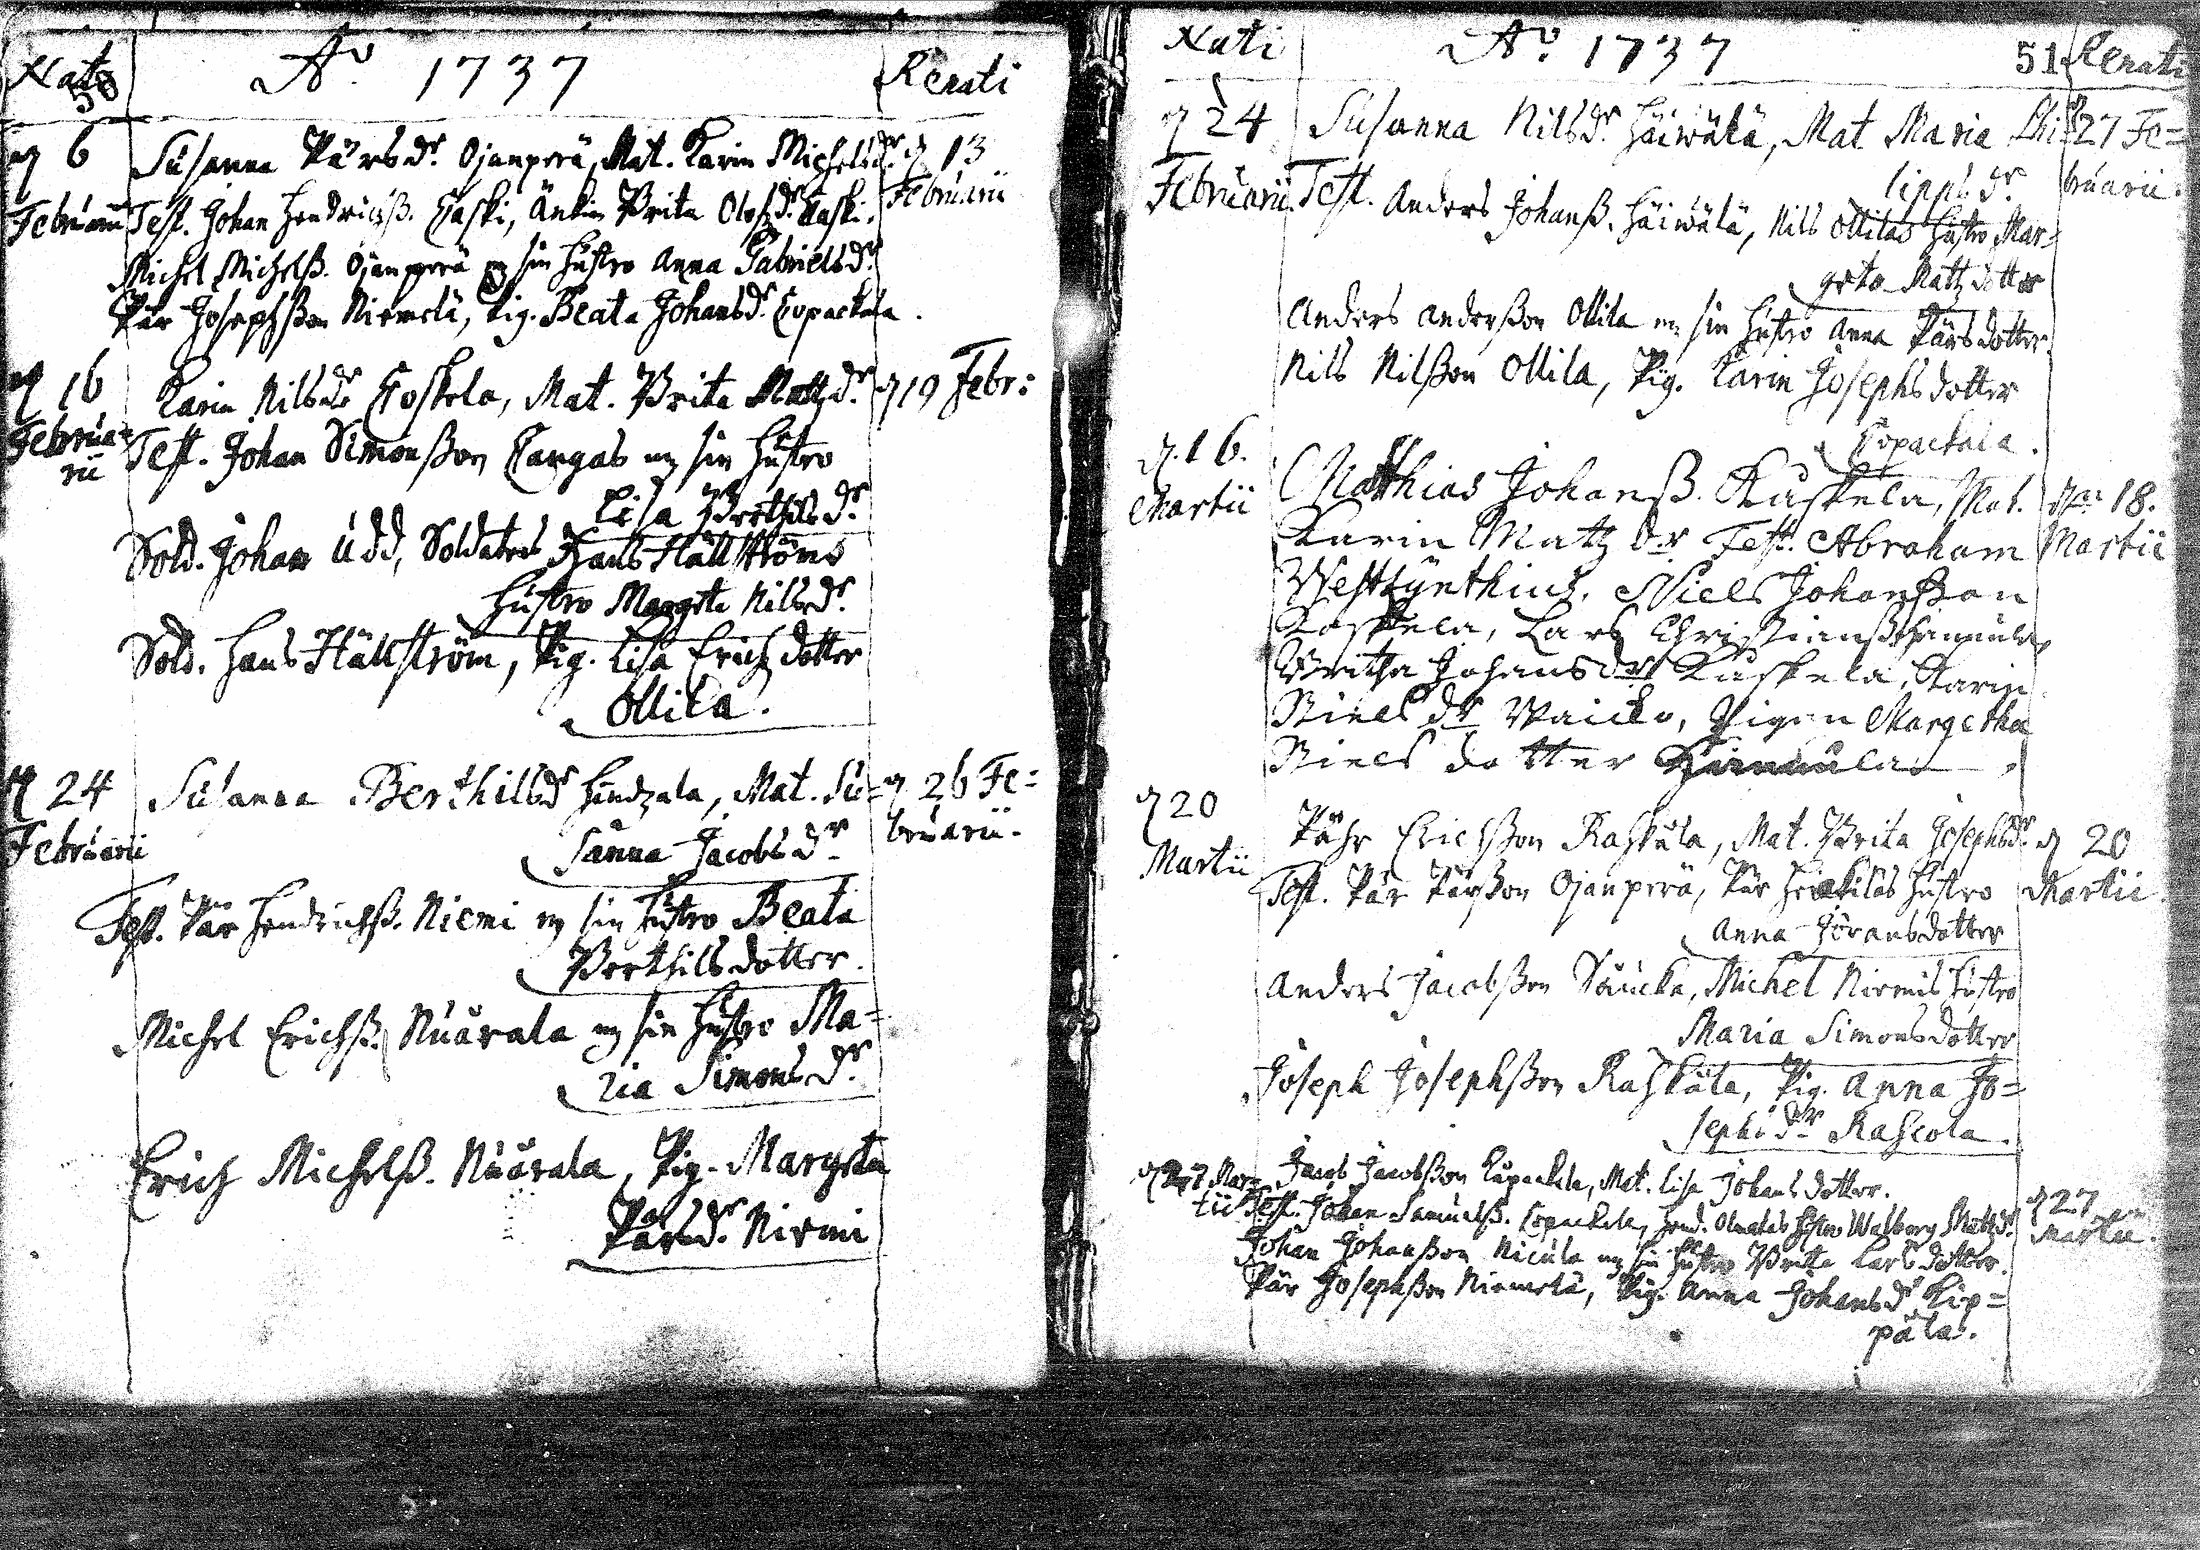 Nati
50
Ao 1737
Renati
d 6
Februarii
Susanna Pärsdr. Ojanperä, Mat. Karin Michelsdr.
d 13
Februarii
Test. Johan Hendrichß. Kaski, Änkia Brita Olofsdr. Kaski.
Michel Michelß. Ojanperä og sin hustro Anna Gabrielsdr.
Pär Josephßon Niemelä, Pig. Beata Johansdr. Kopackala.
d 16
Februa=
rii
Karin Nilsdr Koskela, Mat. Brita Matzdr.
d 19 Febr:
Test. Johan Simonßon Kangas og sin hustro
Lisa Berthilsdr.
Sold. Johan Udd, Soldatens Hans Hällströms
hustro Margeta Nilsdr.
Sold. Hans Hällström, Pig. Lisa Erichdotter
Ollila.
d 24
Februarii
Susanna Berthilsdr Hindzala, Mat. Su=
sanna Jacobsdr.
d 26 Fe=
bruarii.
Test. Pär Hendrichß. Niemi og sin hustro Beata
Berthilsdotter.
Michel Erichß. Nuårala og sin hustro Ma=
ria Simonsdr.
Erich Michelß. Nuårala, Pig. Margeta
Pärsdr. Niemi
Nati
Ao. 1737
51
Renati
d 24
Februarii.
Susanna Nilsdr. Häiwälä, Mat Maria Phi=
lippsdr.
d 27 Fe=
bruarii.
Test. Anders Johanß. Häiwälä, Nils Ollilas hustro Mar=
geta Matzdotter
Anders Anderßon Ollila og sin hustro Anna Pärsdotter.
Nils Nilßon Ollila, Pig. Karin Josephsdotter
Kopackala.
d. 16.
Martii
Matthias Johanß. Kuskela, Mat.
den 18.
Martii
Karin Matz dr Test. Abraham
Westzynthius, Niels Johanßon
Koskela, Lars Christianß Hannula,
Britha Johansdr Kuskela, Karin
Niels dr Wainio, Pigan Margetha
Niels dotter Hannula
d 20
Martii
Pähr Erichßon Raskula, Mat. Brita Josephsdr.
d 20
Martii
Test. Pär Pärßon Ojanperä, Pär Heikilas hustro
Anna Jöransdotter
Anders Jacobßon Nåucka, Michel Niemis hustro
Maria Simonsdotter
Joseph Josephßon Raskåla, Pig. Anna Jo=
sephsdr Rascola.
d 27 Mar=
tii
Jacob Jacobßon Kopackala, Mat. Lisa Johansdotter.
d 27
Martii.
Test. Johan Samuelß. Kopackala, Hend. Olmalas hustro Walborg Matzdr.
Johan Johanßon Nicula og sin hustro Brita Larsdotter.
Pär Josephßon Niemelä, Pig. Anna Johansdr Kip=
påla.